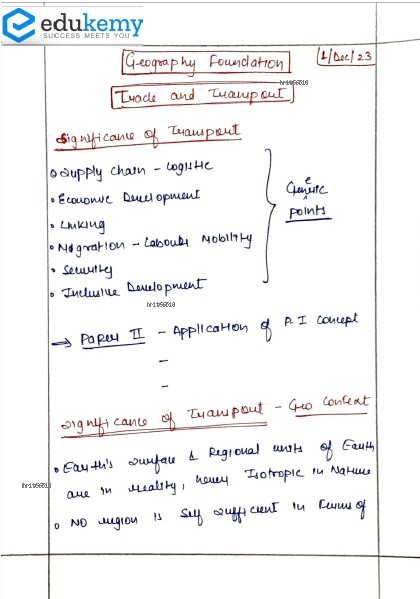 edukemy
SUCCESS MEETS YOU
Geography Foundation
1/Dec/23
Trade and Transport
Significance of Transport
Supply chain - Logistic
Economic Development
Linking
Migration - Labour Mobility
Security
Inclusive Development
Generic
points
→ Paper II - Application of P.I Concept
-
-
Significance of Transport - Geo Context
Earth's surface & Regional units of Earth
are in reality, never Isotropic in Nature
NO region is Self sufficient in terms of